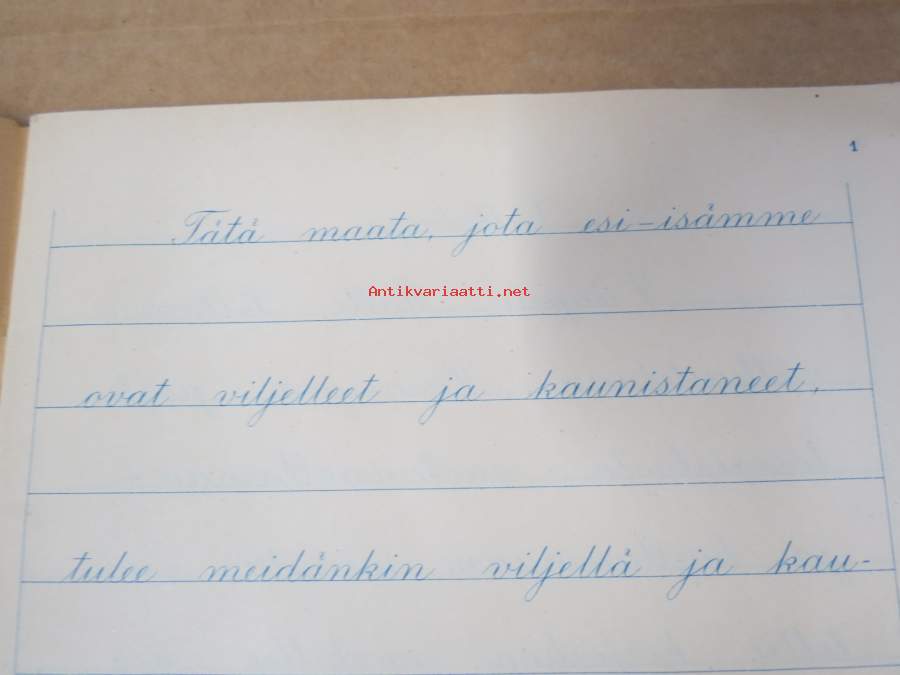 1
Tätä maata, jota esi-isämme
Antikvariaatti.net
ovat viljelleet ja kaunistaneet,
tulee meidänkin viljellä ja kau-